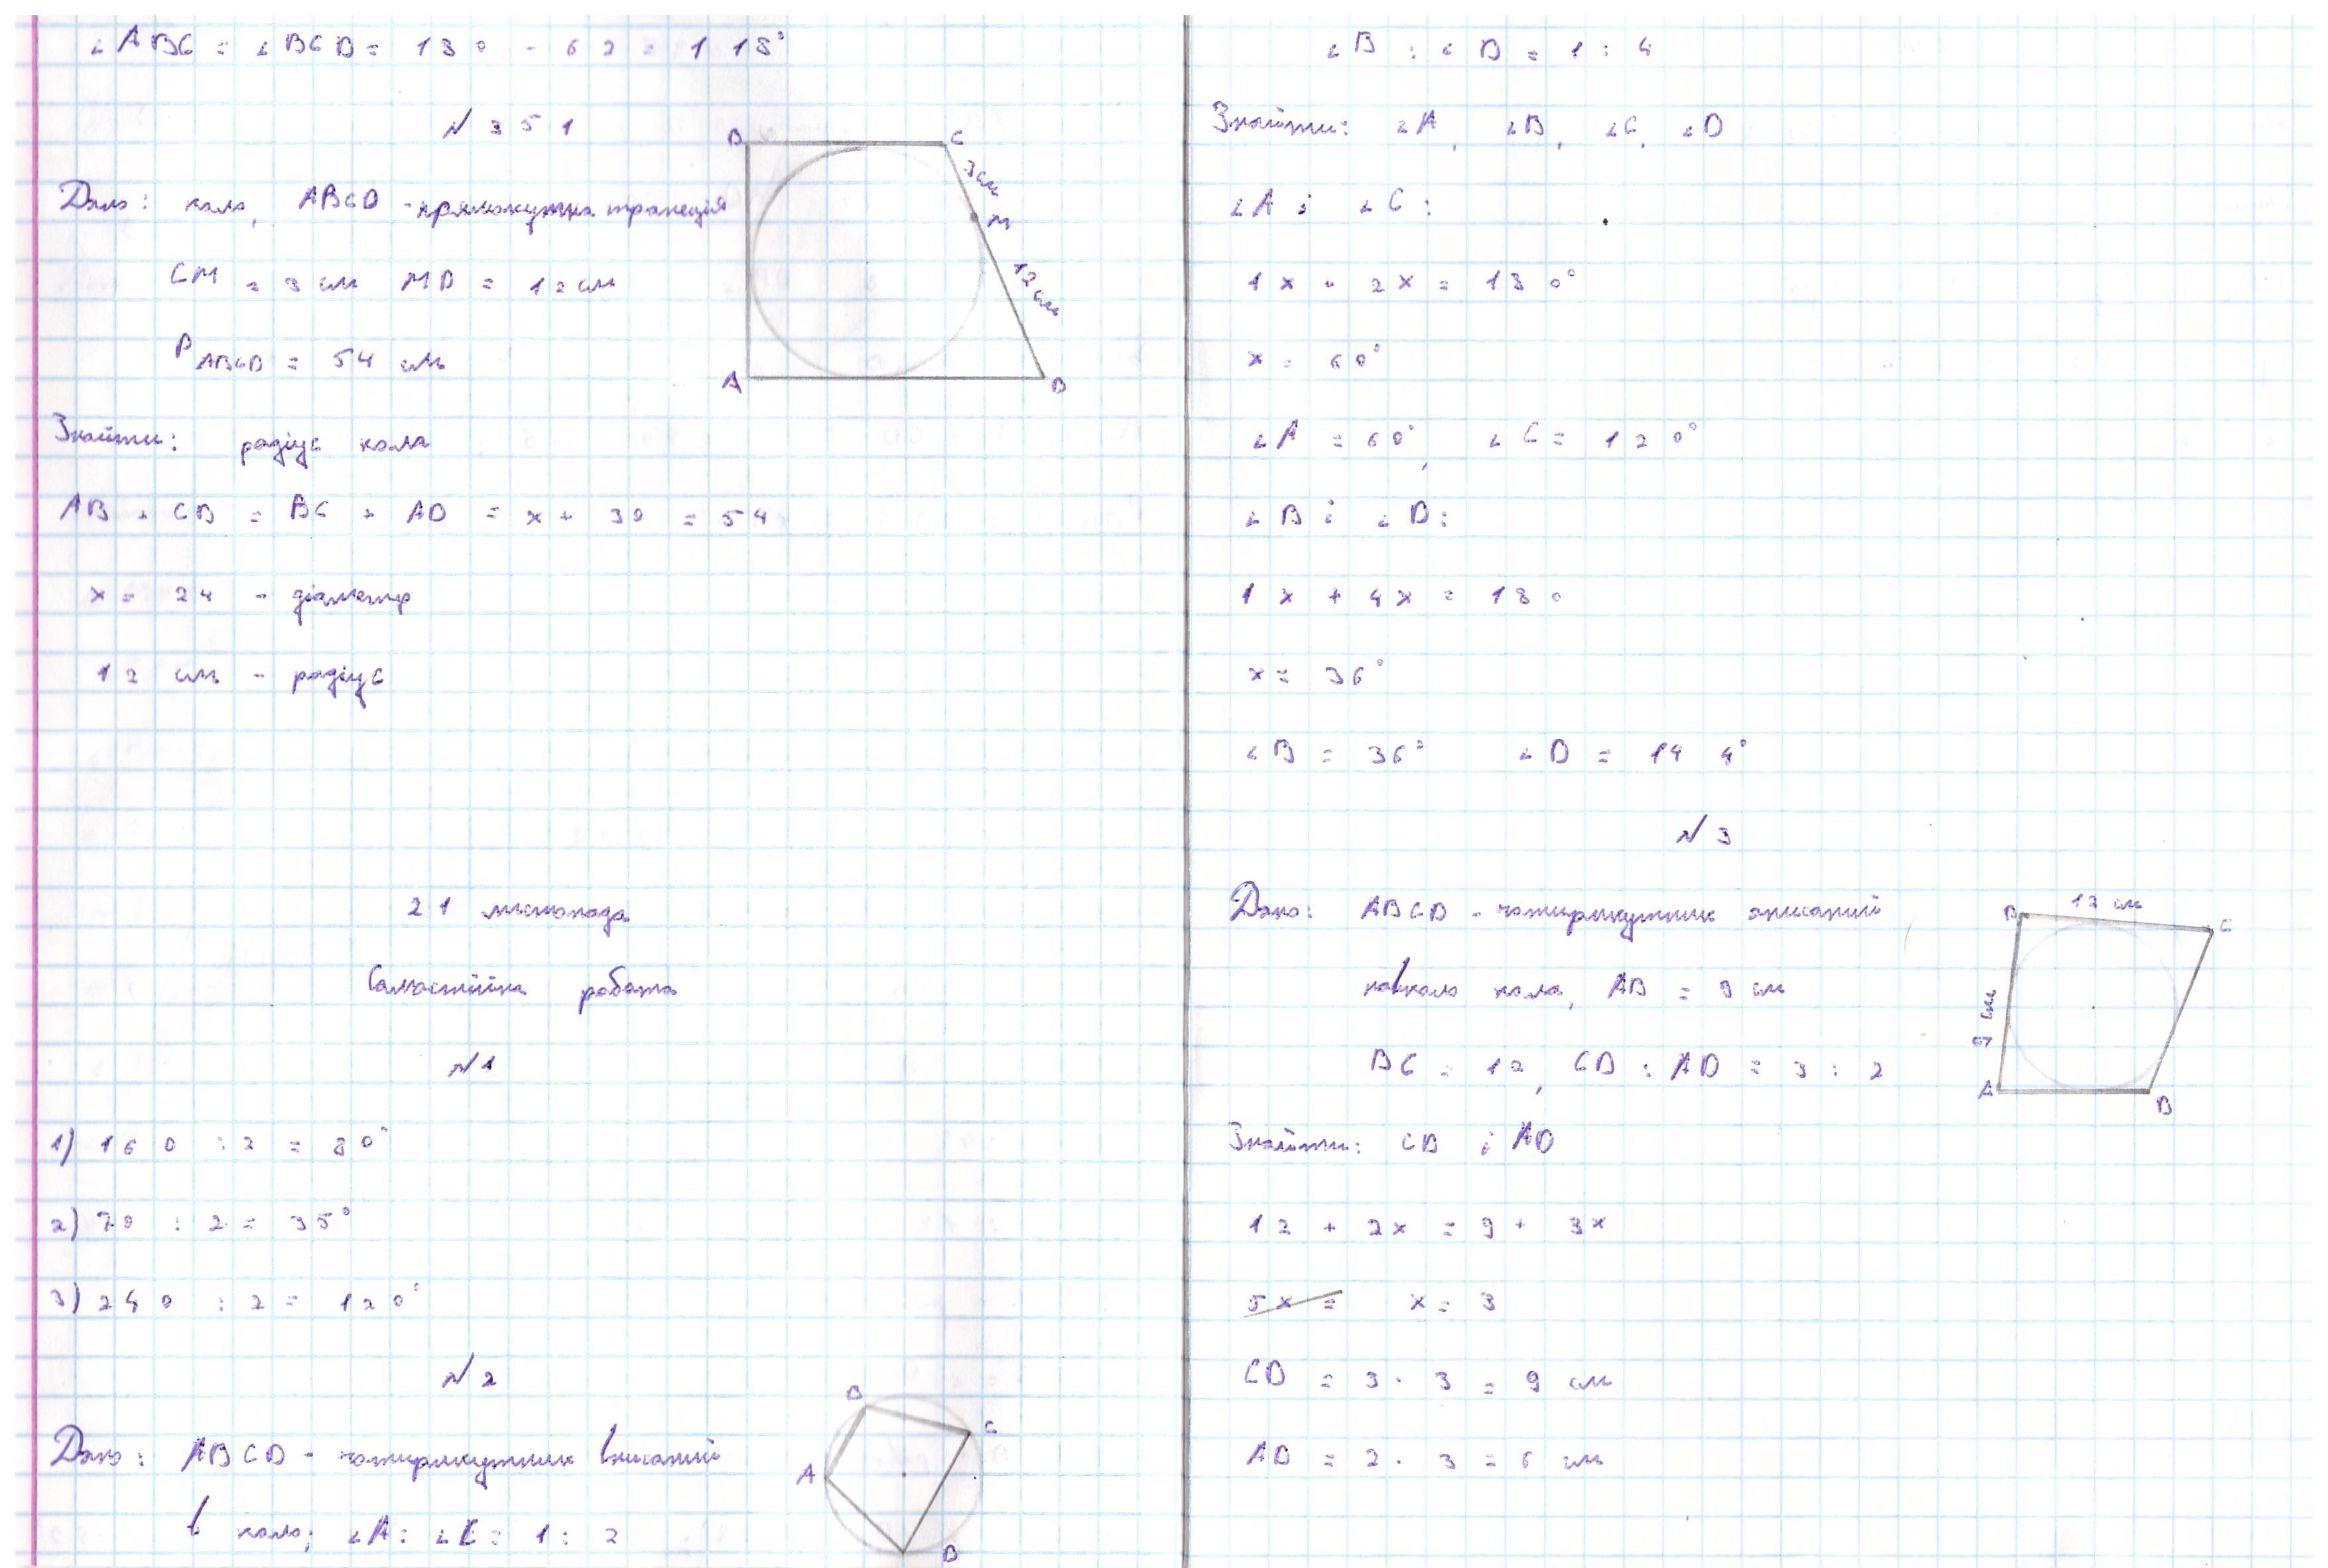 ∠ABC = ∠BCD = 180 - 62 = 118°
N 351
Дано: коло, ABCD - прямокутна трапеція
CM = 3 см MD = 12 см
P ABCD = 54 см
Знайти: радіус кола
AB + CD = BC + AD = x + 30 = 54
x = 24 - діаметр
12 см - радіус
B C
3 см
M
12 см
A D
21 листопада
Самостійна робота
N1
1) 160 : 2 = 80°
2) 70 : 2 = 35°
3) 240 : 2 = 120°
N2
Дано: ABCD - чотирикутник вписаний
в коло; ∠A : ∠C = 1 : 2
B
C
A
D
∠B : ∠D = 1 : 4
Знайти: ∠A, ∠B, ∠C, ∠D
∠A і ∠C:
1x + 2x = 180°
x = 60°
∠A = 60°, ∠C = 120°
∠B і ∠D:
1x + 4x = 180
x = 36°
∠B = 36° ∠D = 144°
N3
Дано: ABCD - чотирикутник описаний
навколо кола, AB = 9 см
BC = 12, CD : AD = 3 : 2
Знайти: CD і AD
12 + 2x = 9 + 3x
5x = x = 3
CD = 3 · 3 = 9 см
AD = 2 · 3 = 6 см
B 12 см C
9 см
A D